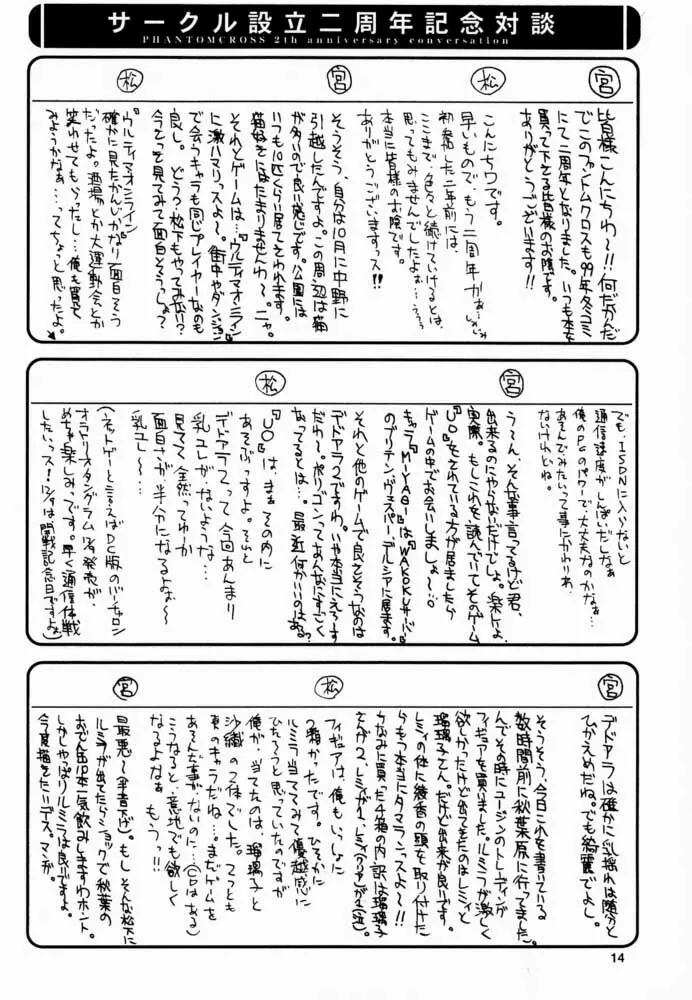 サークル設立二周年記念対談
PHANTOMCROSS 2th anniversary conversation
宮
皆様こんにちわ〜!!何だかんだ
でこのファントムクロスも99年冬コミ
にて二周年となりました。いつも本を
買って下さる皆様のお陰です。
ありがとうございます!!
松
こんにちワです。
早いもので、もう二周年かぁ…しみじみ
初発した二年前には、
ここまで色々と続けていけるとは、
思ってもみませんでしたよぉ…うううっ
本当に皆様のお陰です。
ありがとうございますっス!!
宮
そうそう、自分は10月に中野に
引越したんですよ。この周辺は猫
が多いので良い感じです。公園には
いつも10匹くらい居てそわれます。
猫好きにはたまりませんわ〜。ニャ。
それとゲームは…『ウルティマオンライン』
に激ハマリっスよ〜。街中やダンジョン
で会うキャラも同じプレイヤーなのも
良し。どう?松下もやってみない?
今そっちを見てみて面白そうっしょ?
松
『ウルティマオンライン』
確かに見たかんじかなり面白そう
だったよ。酒場とか大運動会とか
笑わせてもらったし…俺も買って
みようかなぁ…ってちょっと思ったよ。
でも、ISDNに入らないと
通信速度がしんぱいだしなぁ
俺のPCのパワーで大丈夫なのかなぁ…
あそんでみたいって事にかわりぁ
ないけれどね。
宮
う〜ん、そんな事言ってるけど君、
出来るのにやらないだけでしょ。楽しいよ
実際。もしこれを読んでいてそのゲーム
『UO』をされている方が居ましたら
ゲームの中でお会いしましょ〜:o
キャラ『MIYABI』は『WAKOKUサーバ』
のブリテン、ヴェスパー、デルシアに居ます。
それと他のゲームで良さそうなのは
デドアラ2ですわ。いや本当にえらーす
だわ〜。ポリゴンってあんなにすごく
なってるとは…。最近何かいいのはある?
松
『UO』は、まぁその内に
あそぶっすよ。それと
デドアラ2って今回あんまり
乳ユレがないような…
見てて全然ってゆーか
面白さが半分になるよぉ〜
乳ユレ〜〜…
(ネットゲーと言えばDC版のバーチャロン
オラトリオタングラム12/9発売が、
めちゃ楽しみっです。早く通信体戦
したいっス!12/9は開戦記念日ですよぉ)
宮
デドアラは確かに乳揺れは随分と
ひかえめだね。でも綺麗でよし。
そうそう、今日これを書いている
数時間前に秋葉原に行ってました。
んでその時にユージンのトレーディング
フィギュアを買いました。ルミラが激しく
欲しかったけど出てきたのはレミィと
瑠璃子さん。だけど出来が良いです。
レミィの体に綾香の頭を取り付けた
らもう本当にタマランっスよ〜!!
ちなみに買った4箱の内訳は瑠璃子
さんが2、レミィが1、レミィ(アナザ)が1(泣)。
松
フィギュアは、俺もいっしょに
2箱かったです。ひそかに
ルミラ当ててみて優越感に
ひたろうと思っていたのですが
俺が、当てたのは、瑠璃子と
沙織の2体でした。2つとも
東のキャラだね…まだゲームを
あそんだ事がないのに…(CDはある)
こうなると、意地でも欲しく
なるよなぁ もうっ!!
宮
最悪〜(半音下が)。もし、そんな松下に
ルミラが出てたらショックで秋葉の
おでん缶10本一気飲みしますわホント。
しかしやっぱりルミラは良いですよ。
今度描きたいデス。マンガ。
14